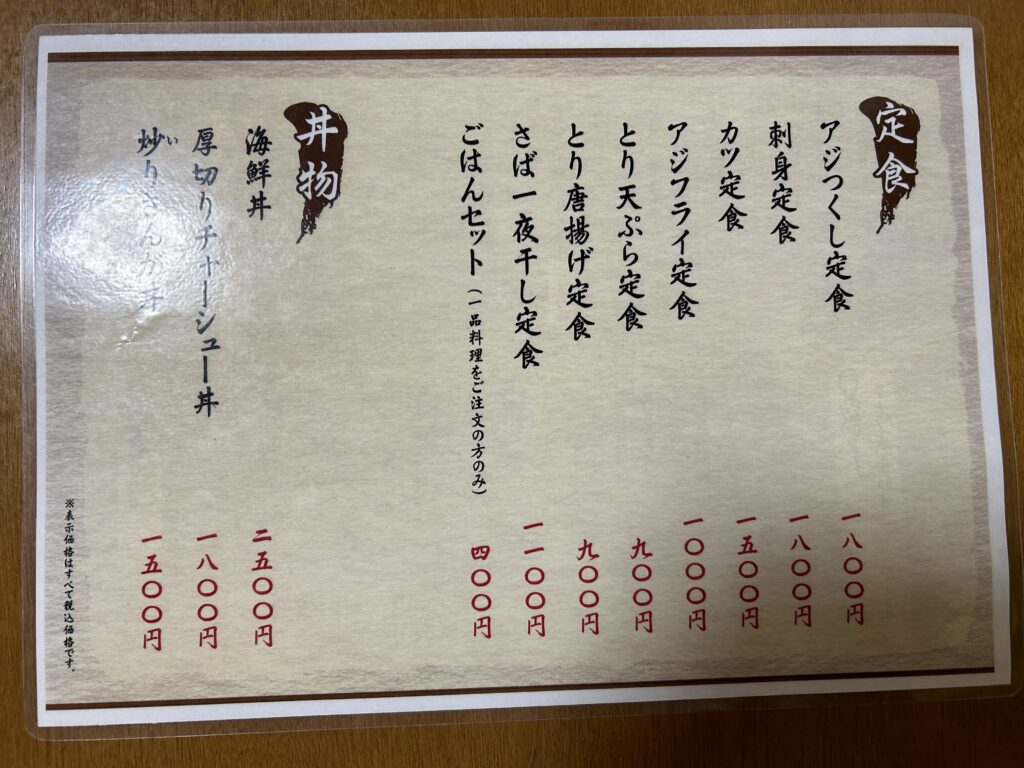 定食
アジつくし定食 一八〇〇円
刺身定食 一八〇〇円
カツ定食 一五〇〇円
アジフライ定食 一〇〇〇円
とり天ぷら定食 九〇〇円
とり唐揚げ定食 九〇〇円
さば一夜干し定食 一一〇〇円
ごはんセット(一品料理をご注文の方のみ) 四〇〇円
丼物
海鮮丼 二五〇〇円
厚切りチャーシュー丼 一八〇〇円
炒りさんが丼 一五〇〇円
い
※表示価格はすべて税込価格です。